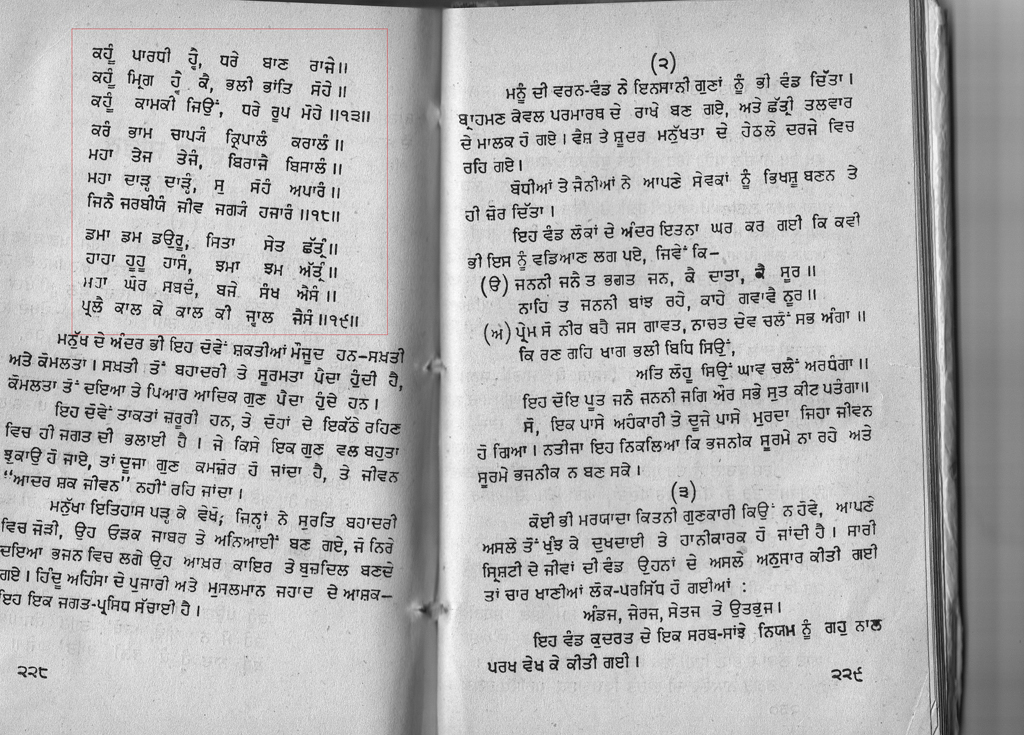 ਕਹੂੰ ਪਾਰਧੀ ਹ੍ਵੈ, ਧਰੇ ਬਾਣ ਰਾਜੇ॥
ਕਹੂੰ ਮ੍ਰਿਗ ਹ੍ਵੈ ਕੈ, ਭਲੀ ਭਾਂਤਿ ਸੋਹੇ॥
ਕਹੂੰ ਕਾਮਕੀ ਜਿਉਂ, ਧਰੇ ਰੂਪ ਮੋਹੇ॥੧੩॥
ਕਰੰ ਭਾਮ ਚਾਪ੍ਯੰ ਕ੍ਰਿਪਾਲੰ ਕਰਾਲੰ॥
ਮਹਾ ਤੇਜ ਤੇਜੰ, ਬਿਰਾਜੈ ਬਿਸਾਲੰ॥
ਮਹਾ ਦਾੜ੍ਹ ਦਾੜ੍ਹੰ, ਸੁ ਸੋਹੰ ਅਪਾਰੰ॥
ਜਿਨੈ ਜਰਬੀਯੰ ਜੀਵ ਜਗ੍ਯੰ ਹਜਾਰੰ॥੧੮॥
ਡਮਾ ਡਮ ਡਉਰੂ, ਸਿਤਾ ਸੇਤ ਛੱਤ੍ਰੰ॥
ਹਾਹਾ ਹੂਹੂ ਹਾਸੰ, ਝਮਾ ਝਮ ਅੱਤ੍ਰੰ॥
ਮਹਾ ਘੋਰ ਸਬਦੰ, ਬਜੇ ਸੰਖ ਐਸੰ॥
ਪ੍ਰਲੈ ਕਾਲ ਕੇ ਕਾਲ ਕੀ ਜ੍ਵਾਲ ਜੈਸੰ॥੧੯॥
ਮਨੁੱਖ ਦੇ ਅੰਦਰ ਭੀ ਇਹ ਦੋਵੇਂ ਸ਼ਕਤੀਆਂ ਮੌਜੂਦ ਹਨ–ਸਖ਼ਤੀ
ਅਤੇ ਕੋਮਲਤਾ। ਸਖ਼ਤੀ ਤੋਂ ਬਹਾਦਰੀ ਤੇ ਸੂਰਮਤਾ ਪੈਦਾ ਹੁੰਦੀ ਹੈ,
ਕੋਮਲਤਾ ਤੋਂ ਦਇਆ ਤੇ ਪਿਆਰ ਆਦਿਕ ਗੁਣ ਪੈਦਾ ਹੁੰਦੇ ਹਨ।
ਇਹ ਦੋਵੇਂ ਤਾਕਤਾਂ ਜ਼ਰੂਰੀ ਹਨ, ਤੇ ਦੋਹਾਂ ਦੇ ਇਕੱਠੇ ਰਹਿਣ
ਵਿਚ ਹੀ ਜਗਤ ਦੀ ਭਲਾਈ ਹੈ। ਜੇ ਕਿਸੇ ਇਕ ਗੁਣ ਵਲ ਬਹੁਤਾ
ਝੁਕਾਉ ਹੋ ਜਾਏ, ਤਾਂ ਦੂਜਾ ਗੁਣ ਕਮਜ਼ੋਰ ਹੋ ਜਾਂਦਾ ਹੈ, ਤੇ ਜੀਵਨ
“ਆਦਰ ਸ਼ਕ ਜੀਵਨ” ਨਹੀਂ ਰਹਿ ਜਾਂਦਾ।
ਮਨੁੱਖਾ ਇਤਿਹਾਸ ਪੜ੍ਹ ਕੇ ਵੇਖੋ; ਜਿਨ੍ਹਾਂ ਨੇ ਸੁਰਤਿ ਬਹਾਦਰੀ
ਵਿਚ ਜੋੜੀ, ਉਹ ਓੜਕ ਜਾਬਰ ਤੇ ਅਨਿਆਈਂ ਬਣ ਗਏ, ਜੋ ਨਿਰੇ
ਦਇਆ ਭਜਨ ਵਿਚ ਲਗੇ ਉਹ ਆਖ਼ਰ ਕਾਇਰ ਤੇ ਬੁਜ਼ਦਿਲ ਬਣਦੇ
ਗਏ। ਹਿੰਦੂ ਅਹਿੰਸਾ ਦੇ ਪੁਜਾਰੀ ਅਤੇ ਮੁਸਲਮਾਨ ਜਹਾਦ ਦੇ ਆਸ਼ਕ–
ਇਹ ਇਕ ਜਗਤ-ਪ੍ਰਸਿਧ ਸੱਚਾਈ ਹੈ।
੨੨੮
(੨)
ਮਨੂੰ ਦੀ ਵਰਨ-ਵੰਡ ਨੇ ਇਨਸਾਨੀ ਗੁਣਾਂ ਨੂੰ ਭੀ ਵੰਡ ਦਿੱਤਾ।
ਬ੍ਰਾਹਮਣ ਕੇਵਲ ਪਰਮਾਰਥ ਦੇ ਰਾਖੇ ਬਣ ਗਏ, ਅਤੇ ਛੱਤ੍ਰੀ ਤਲਵਾਰ
ਦੇ ਮਾਲਕ ਹੋ ਗਏ। ਵੈਸ਼ ਤੇ ਸ਼ੂਦਰ ਮਨੁੱਖਤਾ ਦੇ ਹੇਠਲੇ ਦਰਜੇ ਵਿਚ
ਰਹਿ ਗਏ।
ਬੋਧੀਆਂ ਤੇ ਜੈਨੀਆਂ ਨੇ ਆਪਣੇ ਸੇਵਕਾਂ ਨੂੰ ਭਿਖਸ਼ੂ ਬਣਨ ਤੇ
ਹੀ ਜ਼ੋਰ ਦਿੱਤਾ।
ਇਹ ਵੰਡ ਲੋਕਾਂ ਦੇ ਅੰਦਰ ਇਤਨਾ ਘਰ ਕਰ ਗਈ ਕਿ ਕਵੀ
ਭੀ ਇਸ ਨੂੰ ਵਡਿਆਣ ਲਗ ਪਏ, ਜਿਵੇਂ ਕਿ–
(ੳ) ਜਨਨੀ ਜਨੈ ਤ ਭਗਤ ਜਨ, ਕੈ ਦਾਤਾ, ਕੈ ਸੂਰ॥
ਨਾਹਿ ਤ ਜਨਨੀ ਬਾਂਝ ਰਹੇ, ਕਾਹੇ ਗਵਾਵੈ ਨੂਰ॥
(ਅ) ਪ੍ਰੇਮ ਸੋ ਨੀਰ ਬਹੈ ਜਸ ਗਾਵਤ, ਨਾਚਤ ਦੇਵ ਚਲੋਂ ਸਭ ਅੰਗਾ॥
ਕਿ ਰਣ ਗਹਿ ਖਾਗ ਭਲੀ ਬਿਧਿ ਸਿਉਂ,
ਅਤਿ ਲੋਹੂ ਸਿਉਂ ਘਾਵ ਚਲੈਂ ਅਰਧੰਗਾ॥
ਇਹ ਚੋਇ ਪੂਤ ਜਨੈ ਜਨਨੀ ਜਗਿ ਔਰ ਸਭੇ ਸੁਤ ਕੀਟ ਪਤੰਗਾ॥
ਸੋ, ਇਕ ਪਾਸੇ ਅਹੰਕਾਰੀ ਤੇ ਦੂਜੇ ਪਾਸੇ ਮੁਰਦਾ ਜਿਹਾ ਜੀਵਨ
ਹੋ ਗਿਆ। ਨਤੀਜਾ ਇਹ ਨਿਕਲਿਆ ਕਿ ਭਜਨੀਕ ਸੂਰਮੇ ਨਾ ਰਹੇ ਅਤੇ
ਸੂਰਮੇ ਭਜਨੀਕ ਨ ਬਣ ਸਕੇ।
(੩)
ਕੋਈ ਭੀ ਮਰਯਾਦਾ ਕਿਤਨੀ ਗੁਣਕਾਰੀ ਕਿਉਂ ਨ ਹੋਵੇ, ਆਪਣੇ
ਅਸਲੇ ਤੋਂ ਖੁੰਝ ਕੇ ਦੁਖਦਾਈ ਤੇ ਹਾਨੀਕਾਰਕ ਹੋ ਜਾਂਦੀ ਹੈ। ਸਾਰੀ
ਸ੍ਰਿਸ਼ਟੀ ਦੇ ਜੀਵਾਂ ਦੀ ਵੰਡ ਉਹਨਾਂ ਦੇ ਅਸਲੇ ਅਨੁਸਾਰ ਕੀਤੀ ਗਈ
ਤਾਂ ਚਾਰ ਖਾਣੀਆਂ ਲੋਕ-ਪਰਸਿੱਧ ਹੋ ਗਈਆਂ :
ਅੰਡਜ, ਜੇਰਜ, ਸੇਤਜ ਤੇ ਉਤਭੁਜ।
ਇਹ ਵੰਡ ਕੁਦਰਤ ਦੇ ਇਕ ਸਰਬ-ਸਾਂਝੇ ਨਿਯਮ ਨੂੰ ਗਹੁ ਨਾਲ
ਪਰਖ ਵੇਖ ਕੇ ਕੀਤੀ ਗਈ।
੨੨੯